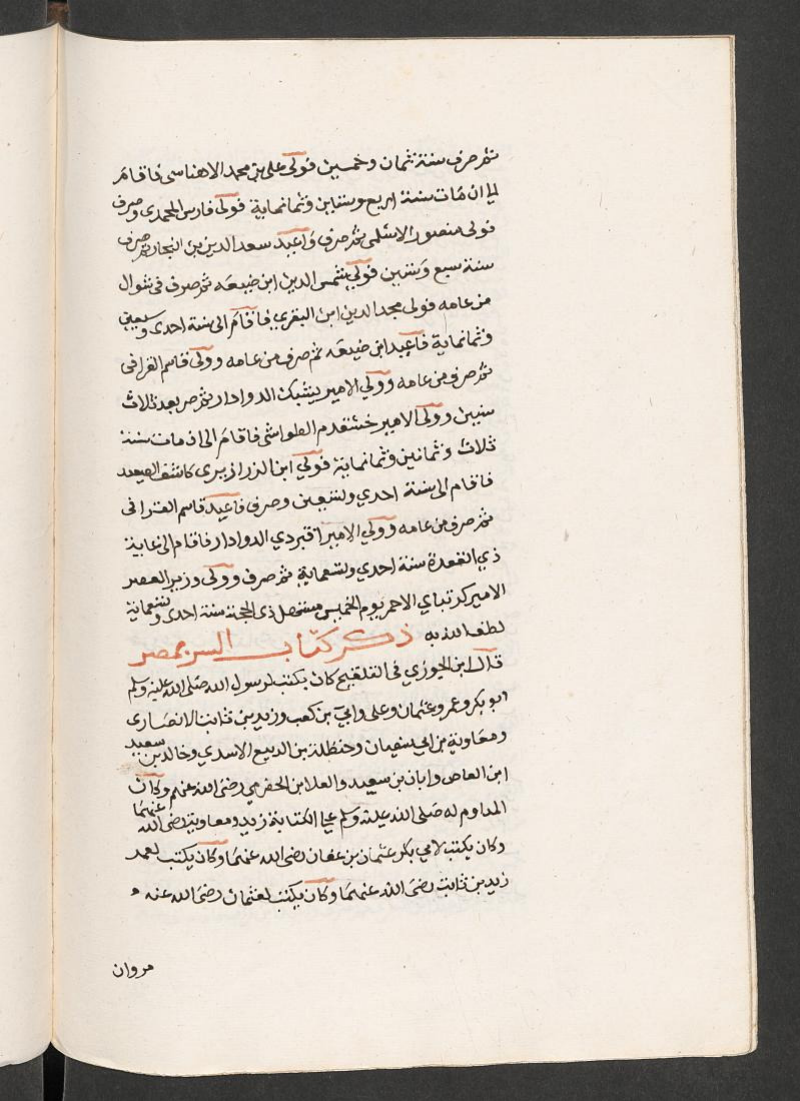 ثم صرف سنة ثمان وخمسين فولى على بن محمد الاهناسى فاقام
الى ان مات سنة اربع وستين وثمانماية فولى فارس المحمدى وصرف
فولى منصور الاسلمى ثم صرف واعيد سعد الدين بن النجار ثم صرف
سنة سبع وستين فولى شمس الدين ابن صنيعه ثم صرف فى شوال
من عامه فولى مجد الدين ابن البقرى فاقام الى سنة احدى وسبعين
وثمانماية فاعيد ابن صنيعه ثم صرف من عامه وولى قاسم القرافى
ثم صرف من عامه وولى الامير يشبك الدوادار ثم صر بعد ثلاث
سنين وولى الامير خشقدم الطواشى فاقام الى ان مات سنة
ثلاث وثمانين وثمانماية فولى ابن الزرازيرى كاشف الصعيد
فاقام الى سنة احدى وتسعين وصرف فاعيد قاسم القرافى
ثم صرف من عامه وولى الامير اقبردي الدوادار فاقام الى غاية
ذي القعدة سنة احدي وتسعماية ثم صرف وولى وزير العصر
الامير كرتباي الاحمر يوم الخميس مستهل ذى الحجة سنة احدى وتسعماية
لطف الله به ذكر كتاب السر بمصر
قال ابن الجوزي فى التلقيح كان يكتب لرسول الله صلى الله عليه وسلم
ابو بكر وعمر وعثمان وعلى وابي بن كعب وزيد بن ثابت الانصارى
ومعاوية بن ابي سفيان وحنظلة بن الربيع الاسدي وخالد بن سعيد
ابن العاص وابان بن سعيد والعلا ابن الحضرمي رضى الله عنهم وكان
المداوم له صلى الله عليه وسلم على الكتابة زيد ومعاوية رضى الله عنهما
وكان يكتب لابي بكر عثمان بن عفان رضى الله عنهما وكان يكتب لعمر
زيد بن ثابت رضى الله عنهما وكان يكتب لعثمان رضى الله عنه
مروان